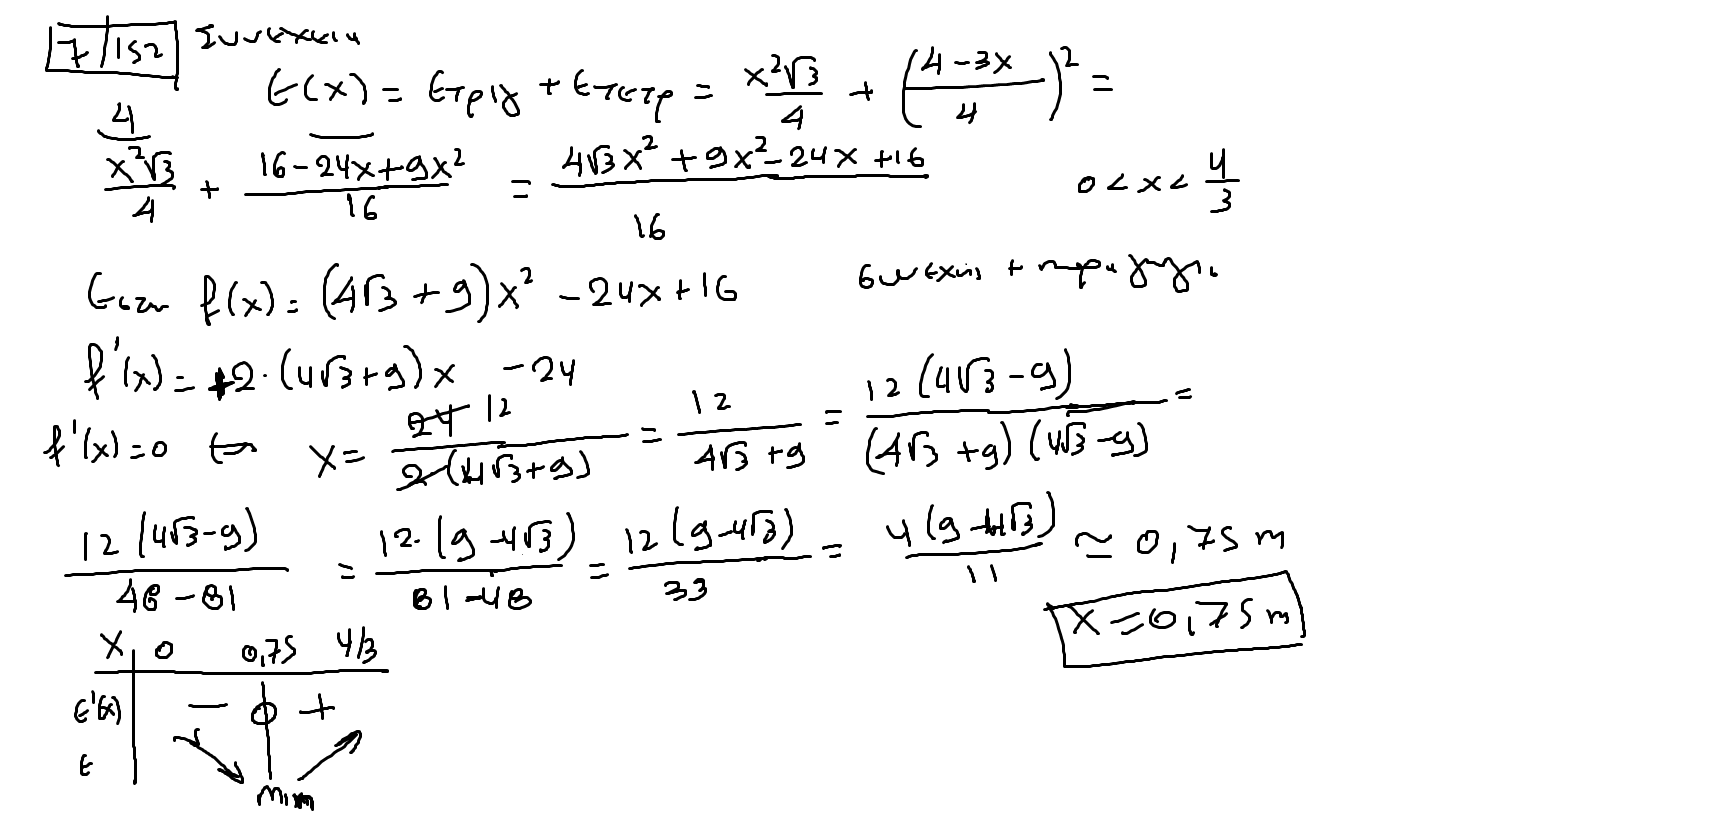 7/152 Συνέχεια
E(x) = Eτριγ + Eτετρ = x²√3/4 + ((4-3x)/4)² =
4
x²√3/4 + (16-24x+9x²)/16 = (4√3x² + 9x² - 24x + 16)/16 0<x<4/3
Εστω f(x) = (4√3 + 9)x² - 24x + 16
f'(x) = +2·(4√3+9)x - 24
f'(x)=0 ⇔ x = 24 12/2(4√3+9) = 12/(4√3+9) = 12(4√3-9)/((4√3+9)(4√3-9)) =
12(4√3-9)/(48-81) = 12·(9-4√3)/(81-48) = 12(9-4√3)/33 = 4(9-4√3)/11 ≃ 0,75 m
x=0,75 m
x 0 0,75 4/3
E'(x) - 0 +
E
min